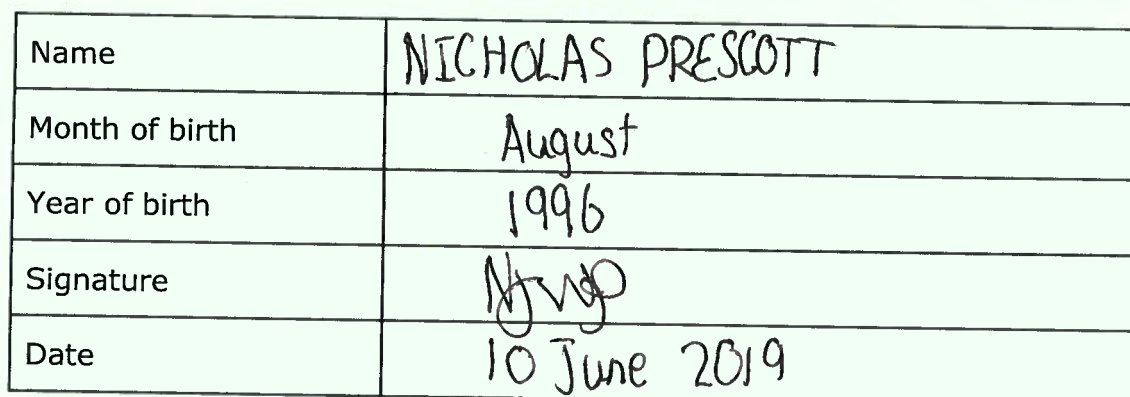 Name NICHOLAS PRESCOTT
Month of birth August
Year of birth 1996
Signature
Date 10 June 2019